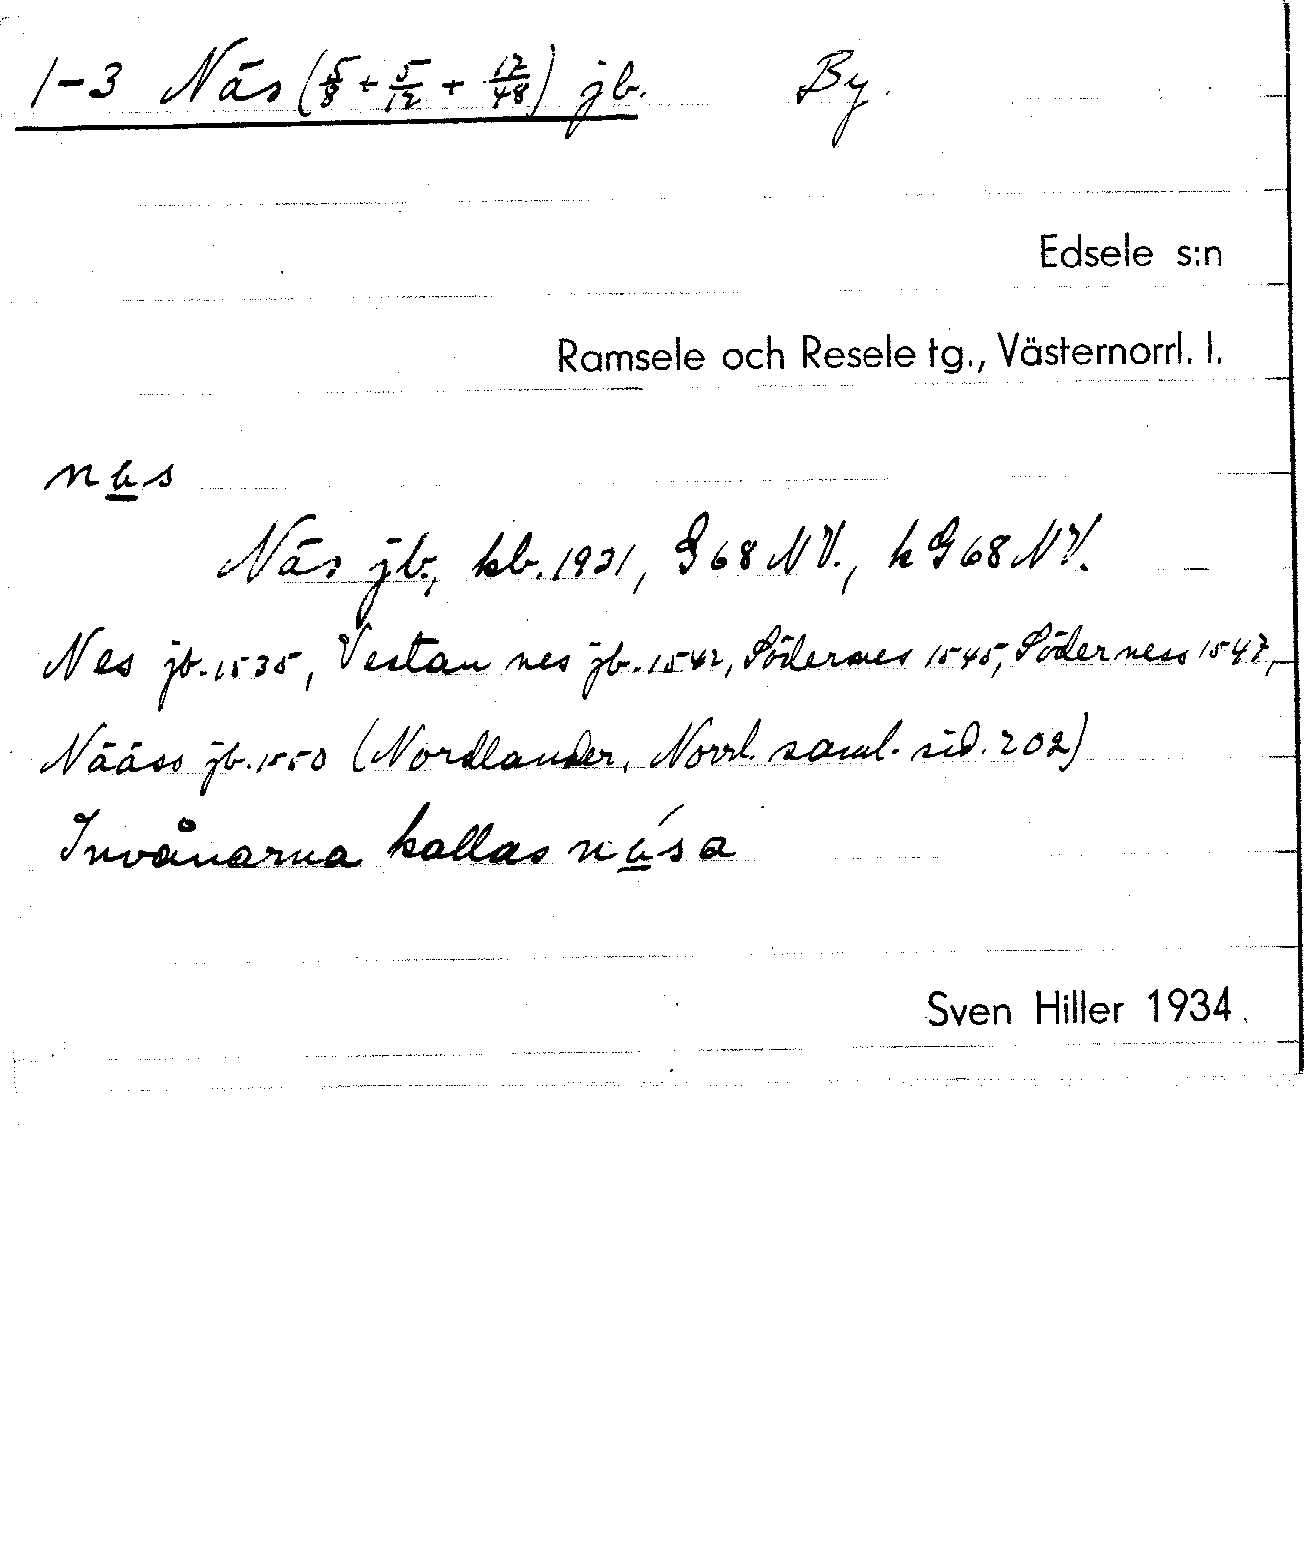 1-3 Näs (5/8 + 5/12 + 17/48) jb. By.
Edsele s:n
Ramsele och Resele tg., Västernorrl. l.
nas
Näs jb., kb. 1931, G 68 NV., k G 68 NV.
Nes jb. 1535, Vestan nes jb. 1542, Södernes 1545, Söderness 1547,
Nääss jb. 1550 (Nordlander, Norrl. saml. sid. 202)
Invånarna kallas násα
Sven Hiller 1934.